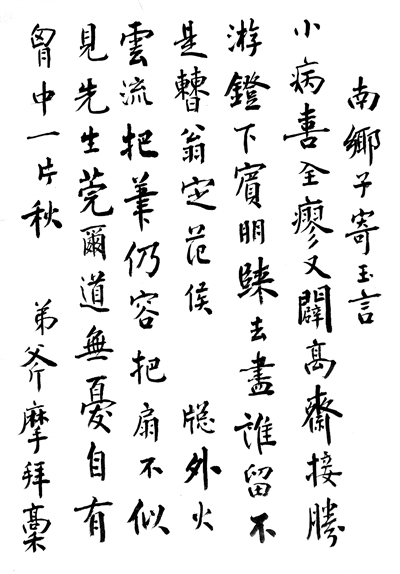 南鄉子寄玉言
小病喜全廖又闢高齋接勝
游鐙下賓朋歸去盡誰留不
是轡翁定范侯　牕外火
雲流把筆仍容把扇不似
見先生莞爾道無憂自有
胷中一片秋　弟斧摩拜藁